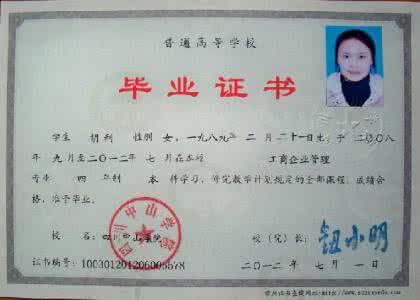 普通高等学校
毕业证书
学生 胡利 性别 女，一九八九年 二月二十一日生，于二〇〇八
年 九月至二〇一二年 七月在本校 工商企业管理
专业 四年制 本科学习，修完教学计划规定的全部课程，成绩合
格，准予毕业。
校 名： 校（院）长： 钮小明
证书编号： 100301201206005578 二〇一二年 七月一日